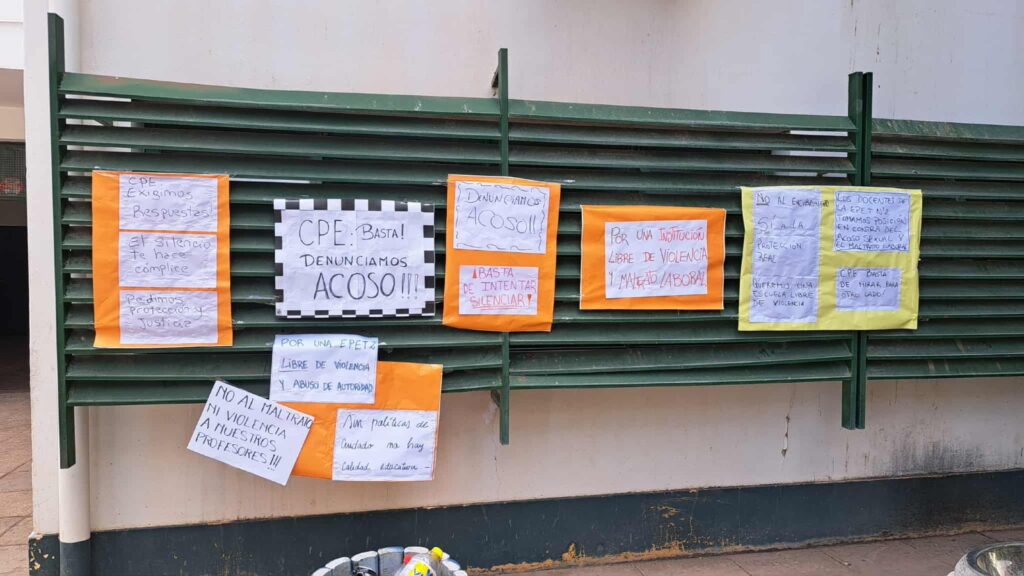 CPE
Exigimos
Respuestas!
El Silencio
te hace
cómplice
Pedimos
protección y
Justicia
CPE: BASTA!
DENUNCIAMOS
ACOSO!!!
DENUNCIAMOS
ACOSO!!
¡BASTA
DE INTENTAR
SILENCIAR!
POR UNA INSTITUCIÓN
LIBRE DE VIOLENCIA
Y MALTRATO LABORAL
NO AL
SÍ A LA
PROTECCIÓN
REAL
QUEREMOS UNA
ESCUELA LIBRE
DE VIOLENCIA
LOS DOCENTES DE
LA EPET Nº2
TOMAMOS POSICIÓN
EN CONTRA DEL
ACOSO SEXUAL Y
EL MALTRATO LABORAL
CPE BASTA
DE MIRAR PARA
OTRO LADO
POR UNA EPET 2
LIBRE DE VIOLENCIA
Y ABUSO DE AUTORIDAD
NO AL MALTRATO
NI VIOLENCIA
A NUESTROS
PROFESORES!!!
Sin políticas de
Cuidado no hay
Calidad educativa